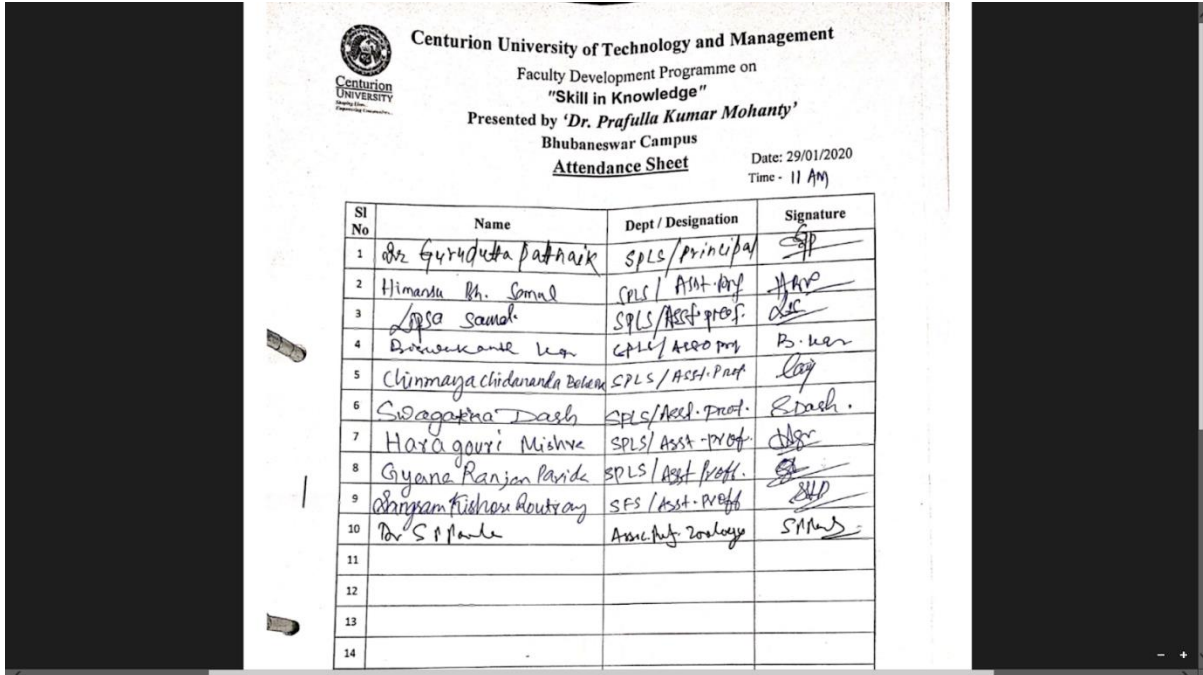 Centurion University of Technology and Management
Centurion
UNIVERSITY
Shaping Lives...
Empowering Communities...
Faculty Development Programme on
"Skill in Knowledge"
Presented by ‘Dr. Prafulla Kumar Mohanty’
Bhubaneswar Campus
Attendance Sheet
Date: 29/01/2020
Time - 11 AM
Sl No Name Dept / Designation Signature
1 Dr Gurudutta Pattnaik SPLS/Principal
2 Himansu Bh. Samal SPLS / Asst. Prof
3 Lipsa Samal SPLS/Asst. prof.
4 Biswakanth kar SPLS/ Asso prof B. kar
5 Chinmaya Chidananda Behera SPLS / Asst. Prof
6 Swagatika Dash SPLS/Asst. Prof. SDash.
7 Haragouri Mishra SPLS/ Asst - prof.
8 Gyana Ranjan Parida SPLS / Asst Proff.
9 Sangram Kishore Routray SFS / Asst. Proff
10 Dr S P Zoology
11
12
13
14